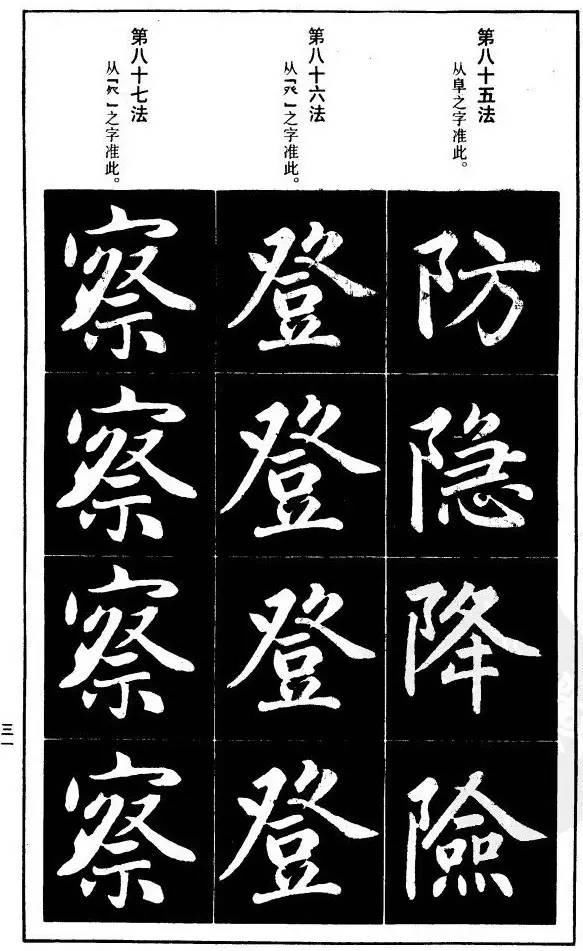 第八十五法
从阜之字准此。
防
隐
降
險
第八十六法
从「癶」之字准此。
登
登
登
登
第八十七法
之字准此。
察
察
察
察
三一